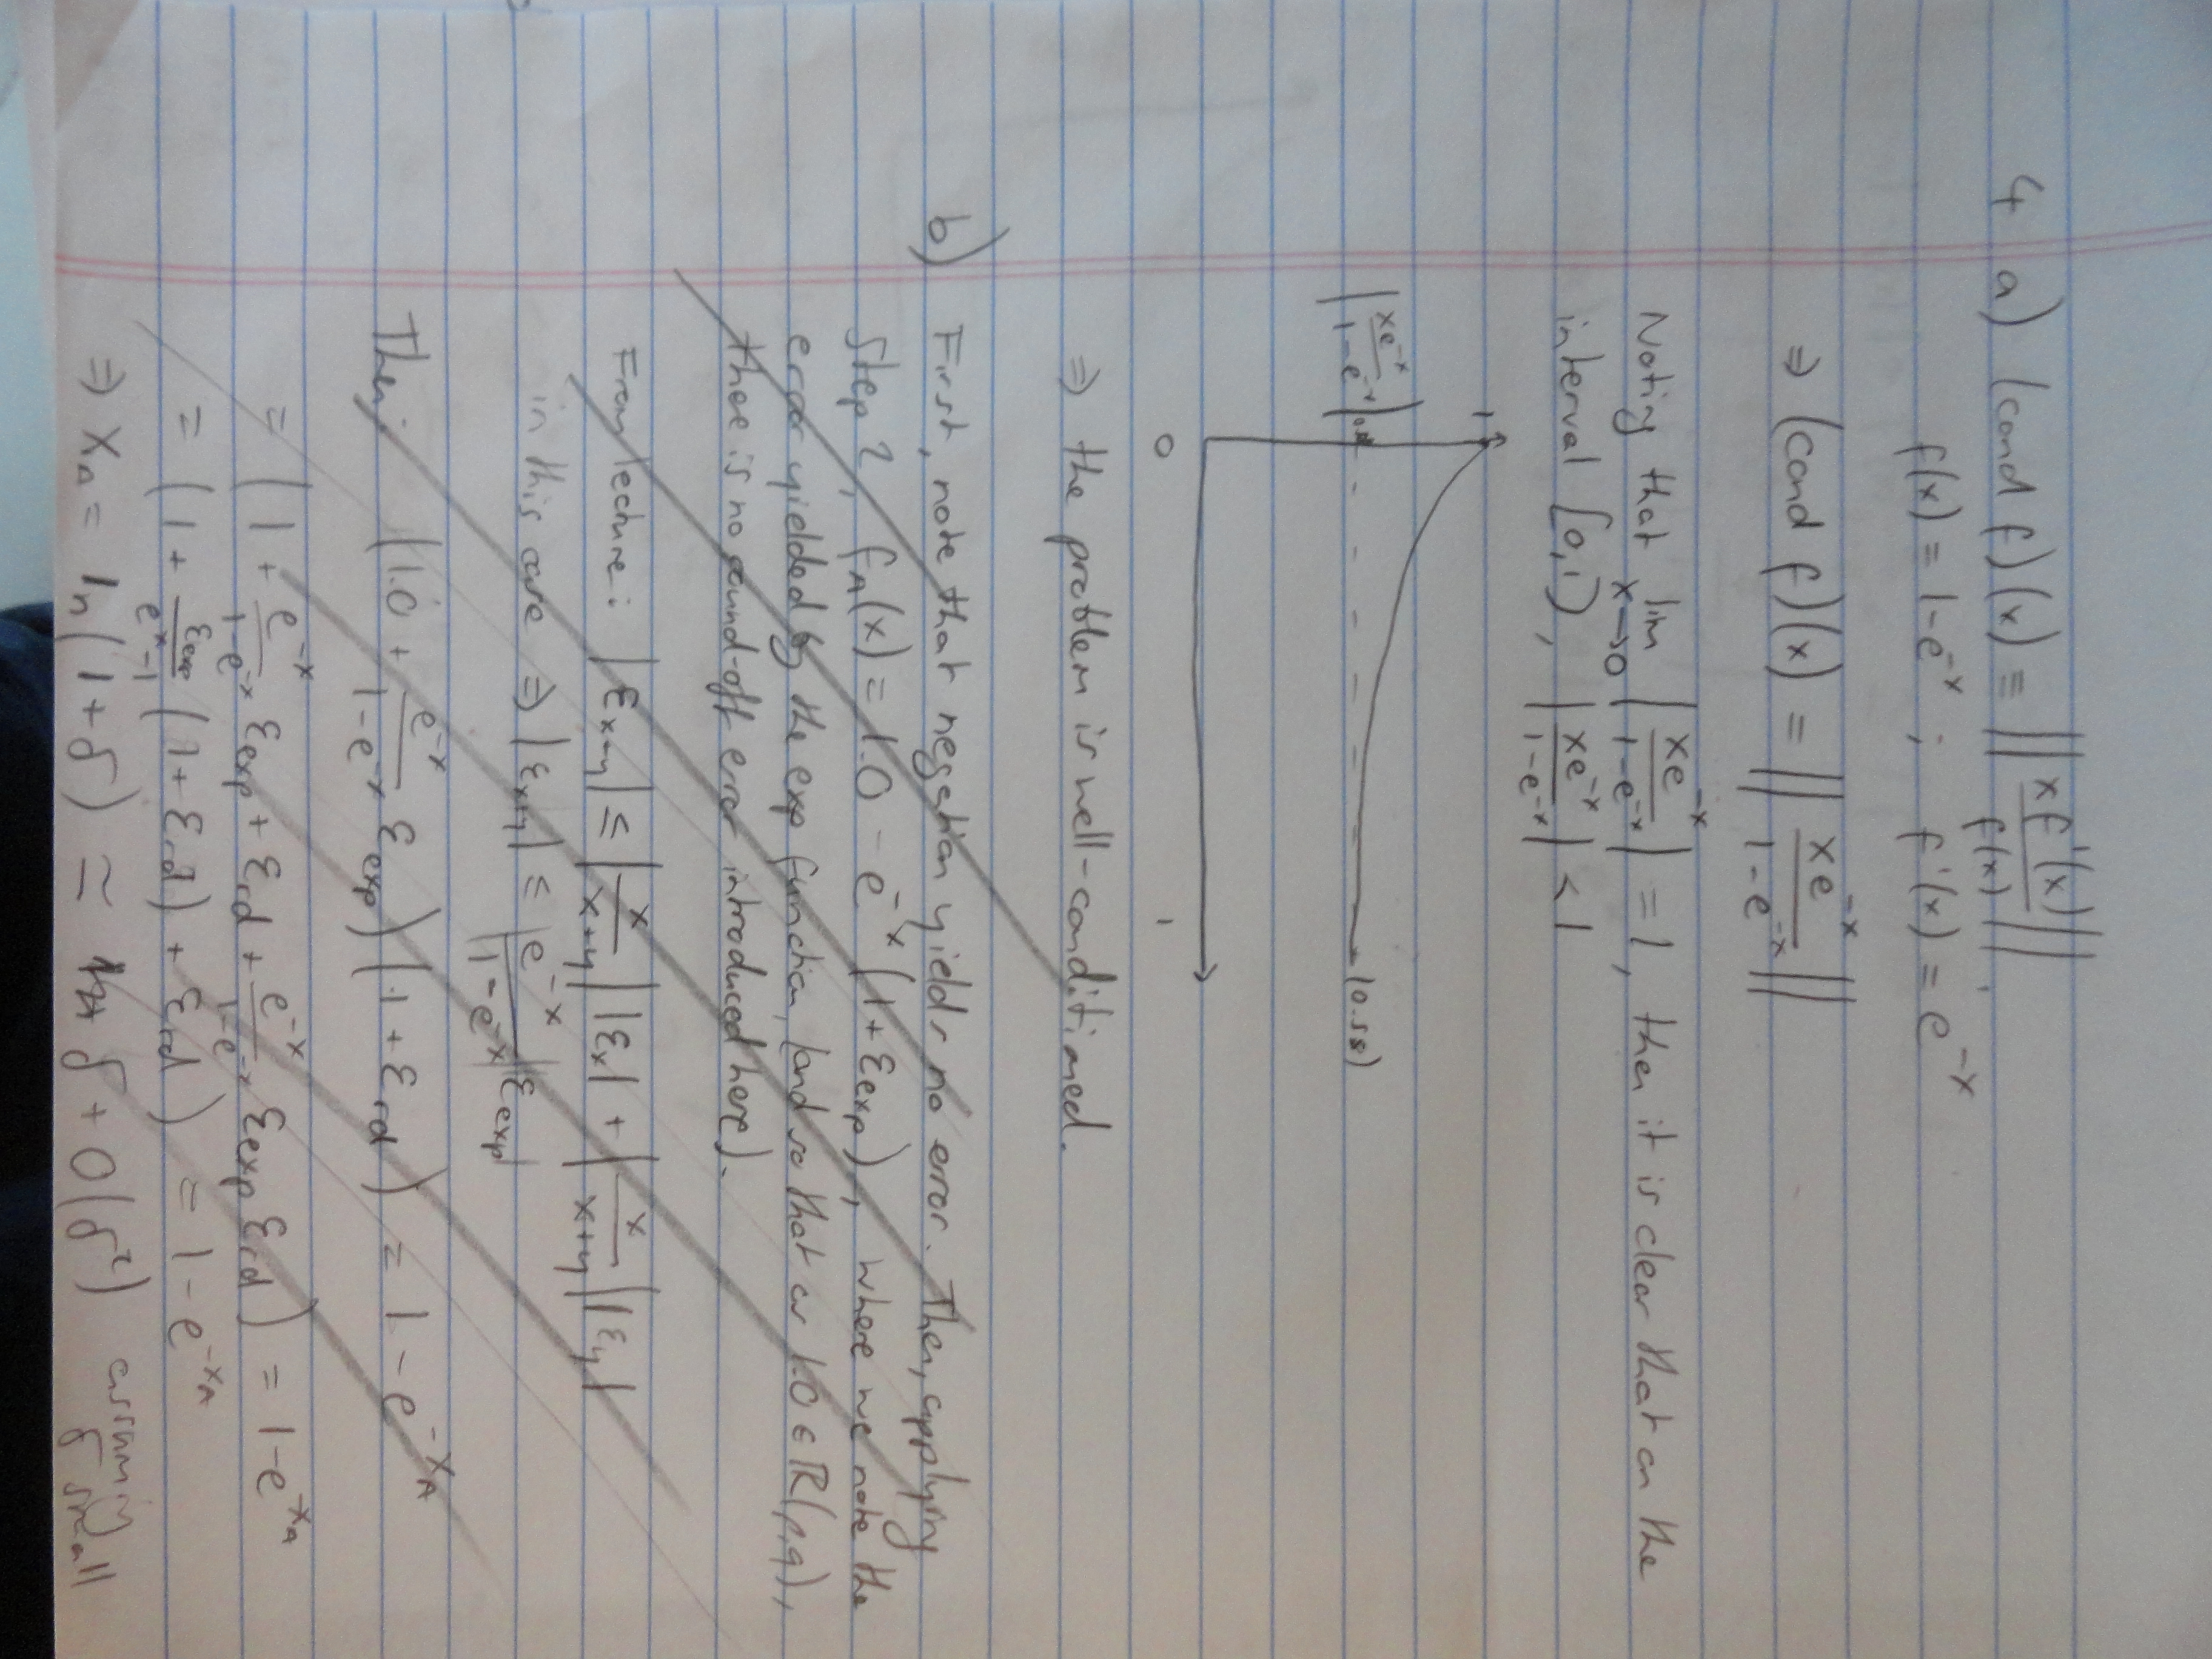 4 a) (cond f)(x) = || x f'(x) / f(x) ||
f(x) = 1 - e^-x ; f'(x) = e^-x
⇒ (cond f)(x) = || xe^-x / 1 - e^-x ||
Noting that lim x→0 | xe^-x / 1 - e^-x | = 1, then it is clear that on the
interval [0,1), | xe^-x / 1 - e^-x | < 1
1
| xe^-x / 1 - e^-x |
(0.58)
0 1
⇒ the problem is well-conditioned.
b) First, note that negation yields no error. Then, applying
Step 2, f_A(x) = 1.0 - e^-x (1 + ε_exp), where we note the
error yielded by the exp function, (and so that as 1.0 ∈ R(p,q),
there is no round-off error introduced here).
From lecture: |ε_x-y| ≤ | x / x+y | |ε_x| + | x / x+y | |ε_y|
in this case ⇒ |ε_x+y| = | e^-x / 1 - e^-x | ε_exp|
Then, (1.0 + e^-x / 1 - e^-x ε_exp)(1 + ε_rd) = 1 - e^-x_A
= (1 + e^-x / 1 - e^-x ε_exp + ε_rd + e^-x / 1 - e^-x ε_exp ε_rd) = 1 - e^-x_A
= (1 + ε_exp / e^x - 1 (1 + ε_rd) + ε_rd) = 1 - e^-x_A
⇒ x_A = ln(1 + δ) ≈ δ + O(δ²) assuming δ small